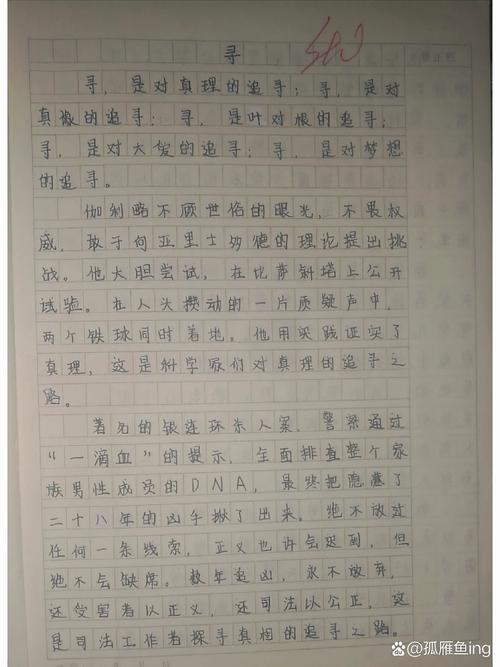 寻
寻，是对真理的追寻；寻，是对
真像的追寻；寻，是叶对根的追寻；
寻，是对大爱的追寻；寻，是对梦想
的追寻。
伽利略不顾世俗的眼光，不畏权
威，敢于向亚里士多德的理论提出挑
战。他大胆尝试，在比萨斜塔上公开
试验。在人头攒动的一片质疑声中，
两个铁球同时着地。他用实践证实了
真理，这是科学家们对真理的追寻之
路。
著名的银连环杀人案，警察通过
“一滴血”的提示，全面排查整个家
族男性成员的DNA，最终把隐藏了
二十八年的凶手揪了出来。绝不放过
任何一条线索，正义也许会迟到，但
绝不会缺席。数年追凶，永不放弃，
还受害者以正义，还司法以公正，这
是司法工作者探寻真相的追寻之路。
@孤雁鱼ing